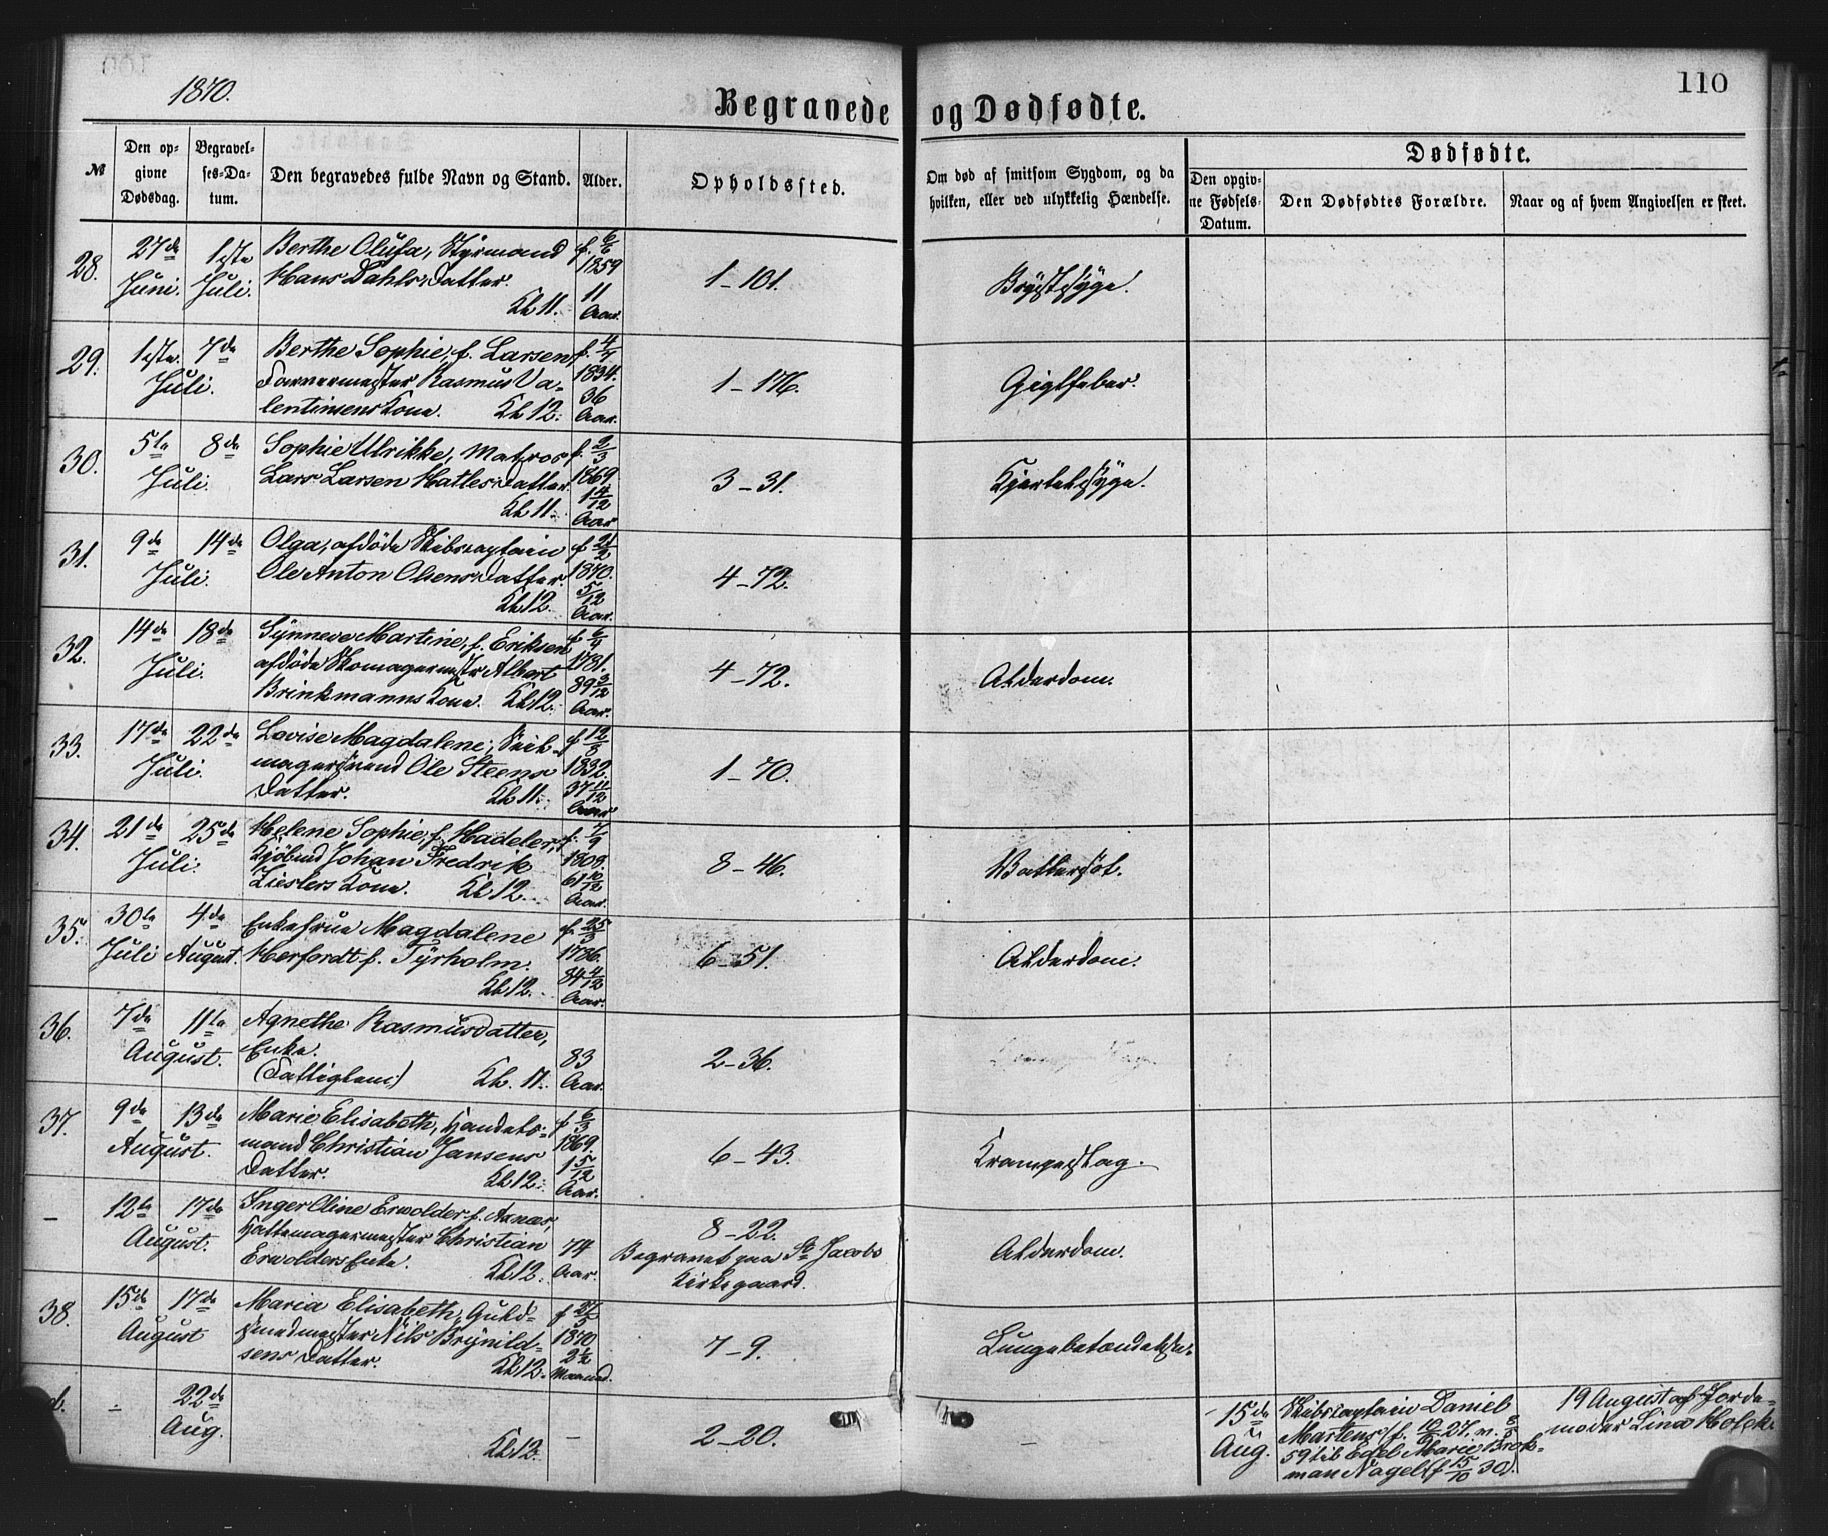 1870.
110
Begravede og Dødfødte.
№
Den opgivne Dødsdag.
Begravelses-Datum.
Den begravedes fulde Navn og Stand.
Alder.
Opholdssted.
Om død af smitsom Sygdom, og da hvilken, eller ved ulykkelig Hændelse.
Dødfødte.
Den opgivne Fødsels-Datum.
Den Dødfødtes Forældre.
Naar og af hvem Angivelsen er skeet.
28. 27de Juni. 1ste Juli.
Berthe Olufa, Styrmand
Hans Dahls Datter.
Kl 11.
f. 6/6 1859
11 Aar.
1-101.
Brystsyge.
29. 1ste 7de Juli.
Berthe Sophie, f. Larsen,
Farvermester Rasmus Va-
lentinsens Kone. Kl 12.
f. 4/7 1834.
36 Aar.
1-176.
Gigtfeber.
30. 5te 8de Juli.
Sophie Ulrikke, Matros
Lars Larsen Hatles Datter.
Kl 11.
f. 2/3 1869
1 4/12 Aar
3-31.
Kjertelsyge.
31. 9de 14de Juli.
Olga, afdöde Skibscaptain
Ole Anton Olsens Datter.
Kl 12.
f 21/2 1870.
5/12 Aar.
4-72.
32. 14de 18de Juli.
Synneve Martine, f. Eriksen
afdöde Skomagermestr Albert
Brinkmanns Kone. Kl 12.
f 6/4 1781.
89 3/12 Aar.
4-72.
Alderdom.
33. 17de 22de Juli.
Lovise Magdalene, Seil-
magersvend Ole Steens
Datter. Kl 11.
f 12/8 1832.
37 11/12 Aar
1-70.
34. 21de 25de Juli.
Helene Sophie, f. Hadeler,
Kjöbmd Johan Fredrik
Zieslers Kone. Kl 12.
f. 7/9 1808.
61 10/12 Aar.
8-46.
Vattersot.
35. 30te Juli 4de August.
Enkefrue Magdalene
Herfordt f. Tyrholm.
Kl 12.
f. 25/3 1786.
84 4/12 Aar.
6-51.
Alderdom.
36. 7de 11te August.
Agnethe Rasmusdatter,
Enke.
(Fattiglem) Kl. 11.
83 Aar.
2-36.
37. 9de 13de August.
Marie Elisabeth, Handels-
mand Christian Jansens
Datter. Kl 12.
f 6/3 1869.
1 5/12 Aar.
6-43.
Krampeslag.
- 12te 17de August.
Inger Oline Erwolder f. Axnæs,
Hattemagermester Christian
Erwolders Enke. Kl 12.
74 Aar.
8-22.
Begravet paa St Jacobs
Kirkegaard.
Alderdom.
38. 15de 17de August
Maria Elisabeth, Guld-
smedmester Nils Brynild-
sens Datter. Kl 12.
f 27/5 1870
2 1/2 Maaned.
7-9.
Lungebetændelse.
d. - 22de Aug.
Kl 12.
-
2-20.
-
15de Aug.
Skibscaptain Daniel
Martens (f. 10/9 27, v. 8/8
59 til Edel Marie Brok-
man Nagel (f 15/10 30).
19 August af Jorde-
moder Lina Holck.